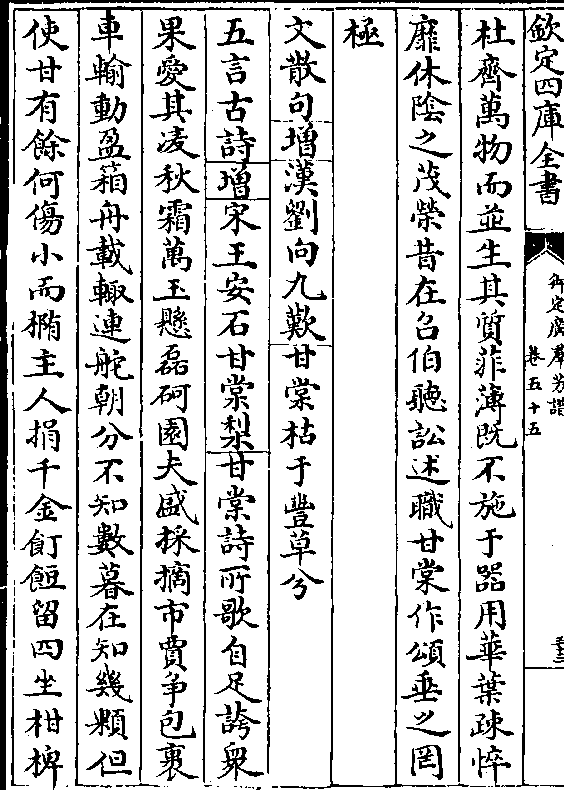 欽定四庫全書
御定廣羣芳譜
卷五十五
杜齊萬物而並生其質菲薄既不施于器用華葉疎悴
靡休陰之茂榮昔在召伯聽訟述職甘棠作頌垂之罔
極
文散句增漢劉向九歎甘棠枯于豐草兮
五言古詩增宋王安石甘棠梨甘棠詩所歌自足誇衆
果愛其凌秋霜萬玉懸磊砢園夫盛採摘市賈争包裹
車輸動盈箱舟載輙連舵朝分不知數暮在知幾顆但
使甘有餘何傷小而橢主人捐千金飣餖留四坐柑椑